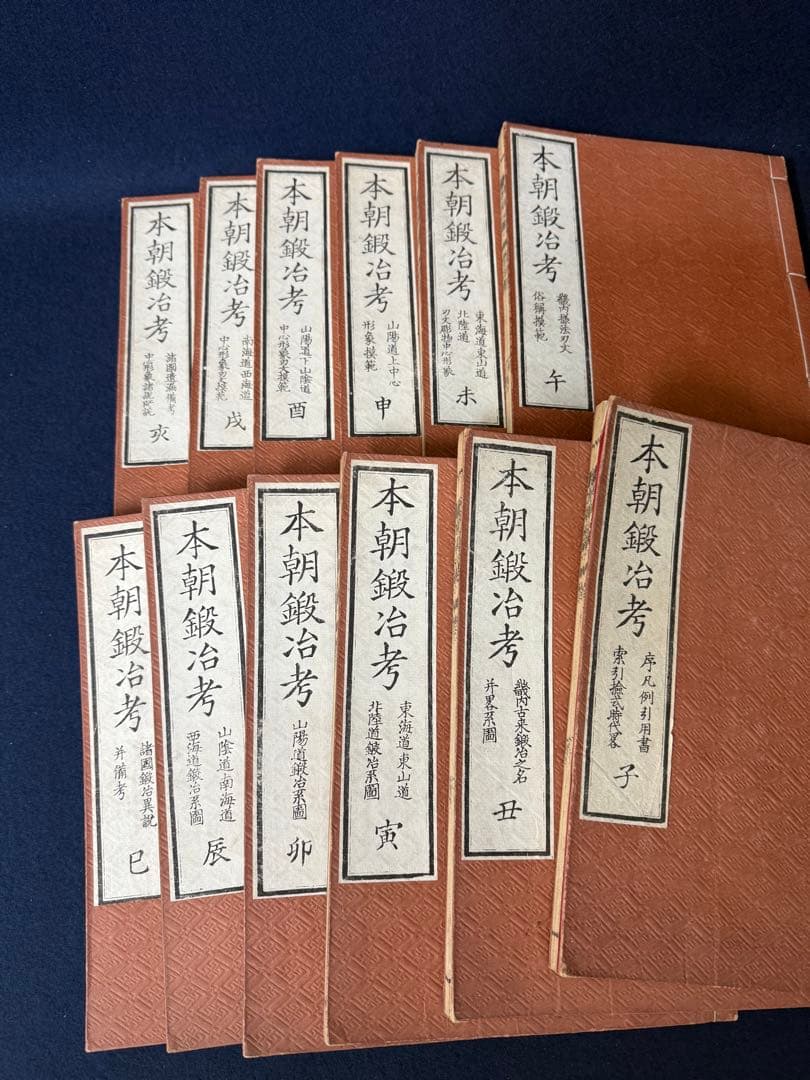 本朝鍛冶考
畿内法刃文
俗稱模範
午
本朝鍛冶考
東海道東山道
北陸道
刃文彫物中心形象
未
本朝鍛冶考
山陽道上中心
形象模範
申
本朝鍛冶考
山陽道下山陰道
中心形象刃文模範
酉
本朝鍛冶考
南海道西海道
中心形象刃文模範
戌
本朝鍛冶考
諸國遺漏備考
中心形象諸説
亥
本朝鍛冶考
序凡例引用書
索引時代畧
子
本朝鍛冶考
畿内古来鍛冶之名
并畧系圖
丑
本朝鍛冶考
東海道東山道
北陸道鍛冶系圖
寅
本朝鍛冶考
山陽道鍛冶系圖
卯
本朝鍛冶考
山陰道南海道
西海道鍛冶系圖
辰
本朝鍛冶考
諸國鍛冶異説
并備考
巳